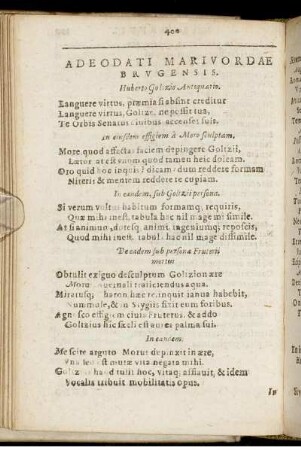 400
ADEODATI MARIVORDAE
BRVGENSIS.
Huberto Goltzio Autoptatin.
Languere virtus, præmia si absint creditur
Languere virtus, Goltzi, ne possit tua,
Te Orbis Senatus civibus accenset suis.
In eiusdem effigiem à Moro sculptam.
More quod affectas faciem depingere Goltzii,
Lætor at est vnum quod tamen heic doleam.
Oro quid hoc inquis? dicam: dum reddere formam
Niteris & mentem reddere te cupiam.
In eandem, sub Goltzii persona.
Si verum vultus habitum formamq; requiris,
Quæ mihi inest, tabula hac nil magè mi simile.
At si animum, dotesq; animi, ingeniumq; reposcis,
Quod mihi inest, tabula hac nil magè dissimile.
De eadem sub persona Fruterii
mortui
Obtulit exiguo desculptum Goltzion ære
Miratusq; haron hæc relinquit ianua habebit,
Agnosco effigiem civis Fruterus, & addo
Goltzius hic sæcli est aurei palma sui.
In eandem.
Me scite arguto Morus depinxit in ære,
Vna sed est mutæ vita negata mihi.
Goltzius haud tulit hoc, vitáq; afflauit, & idem
Vocalis tribuit mobilitatis opus.
In